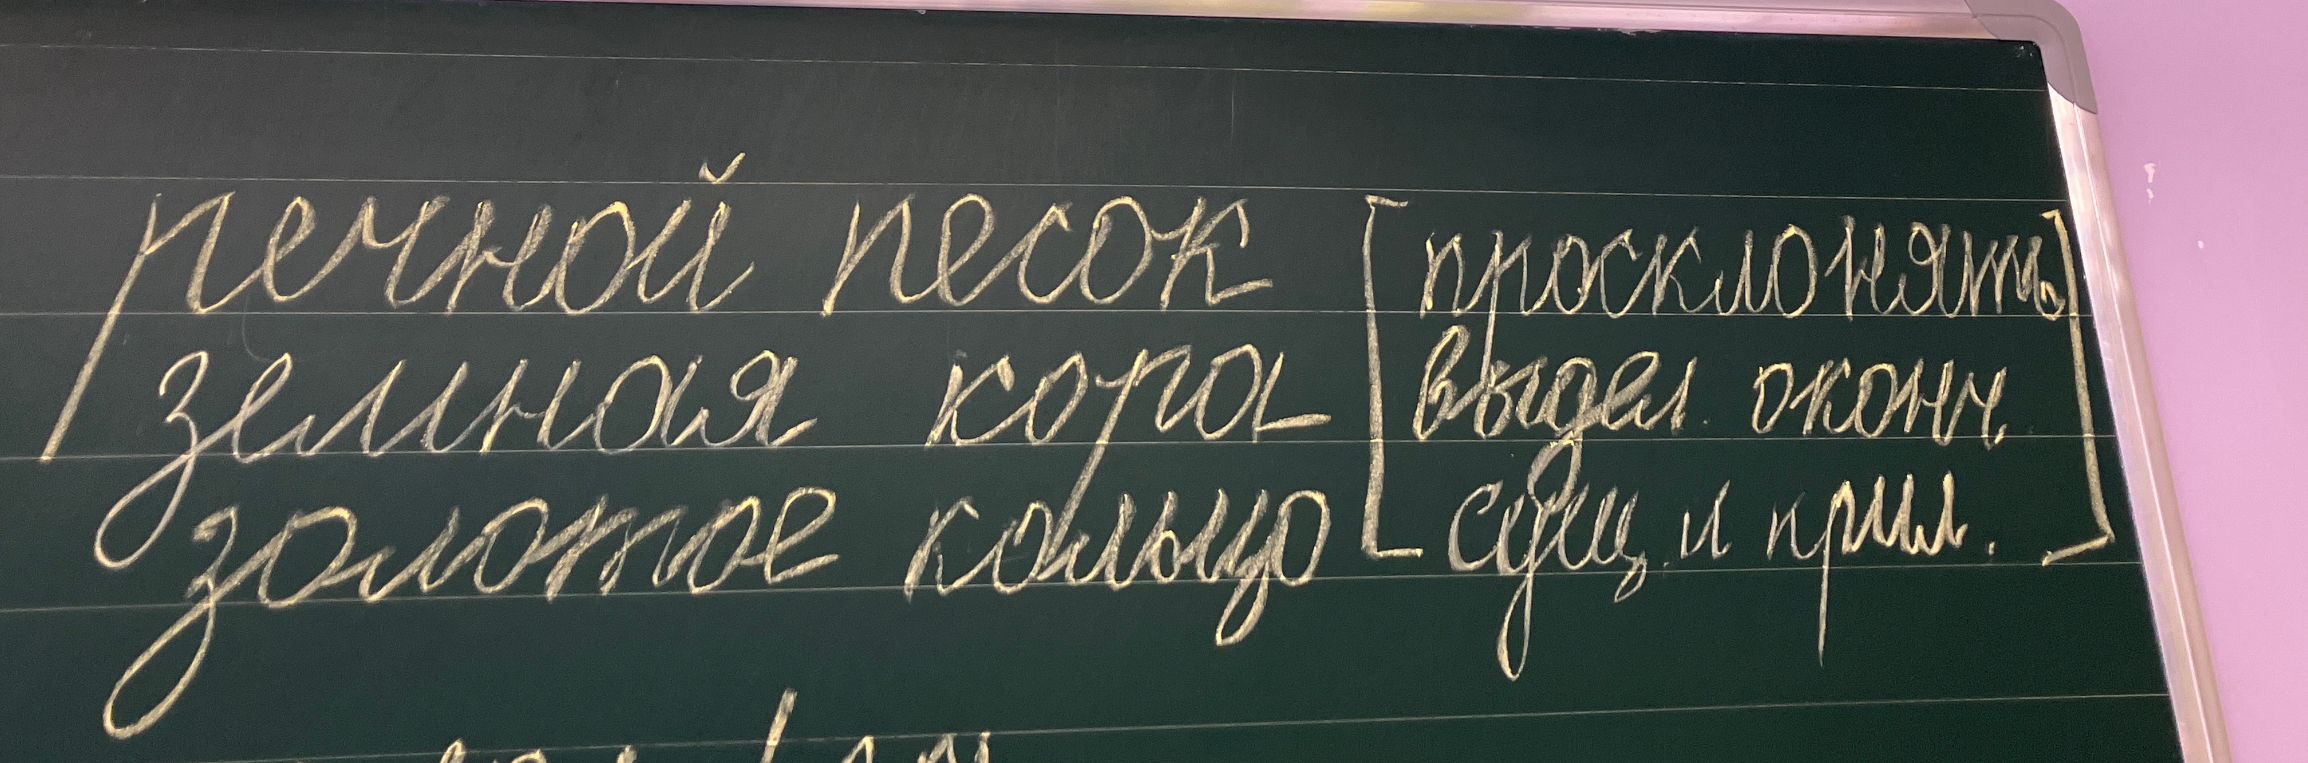 речной песок [просклонять,
земная кора выдел. оконч.
золотое кольцо сущ. и прил.]